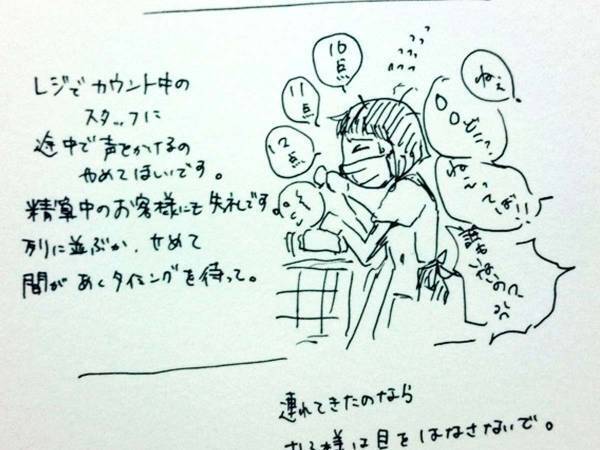 レジでカウント中の
スタッフに
途中で声をかけるの
やめてほしいです。
精算中のお客様にも失礼です。
列に並ぶか、せめて
間があくタイミングを待って。
10点
11点
12点
ねぇ
○○どこっ
ねーってば!!
連れてきたのなら
お子様は目をはなさないで。